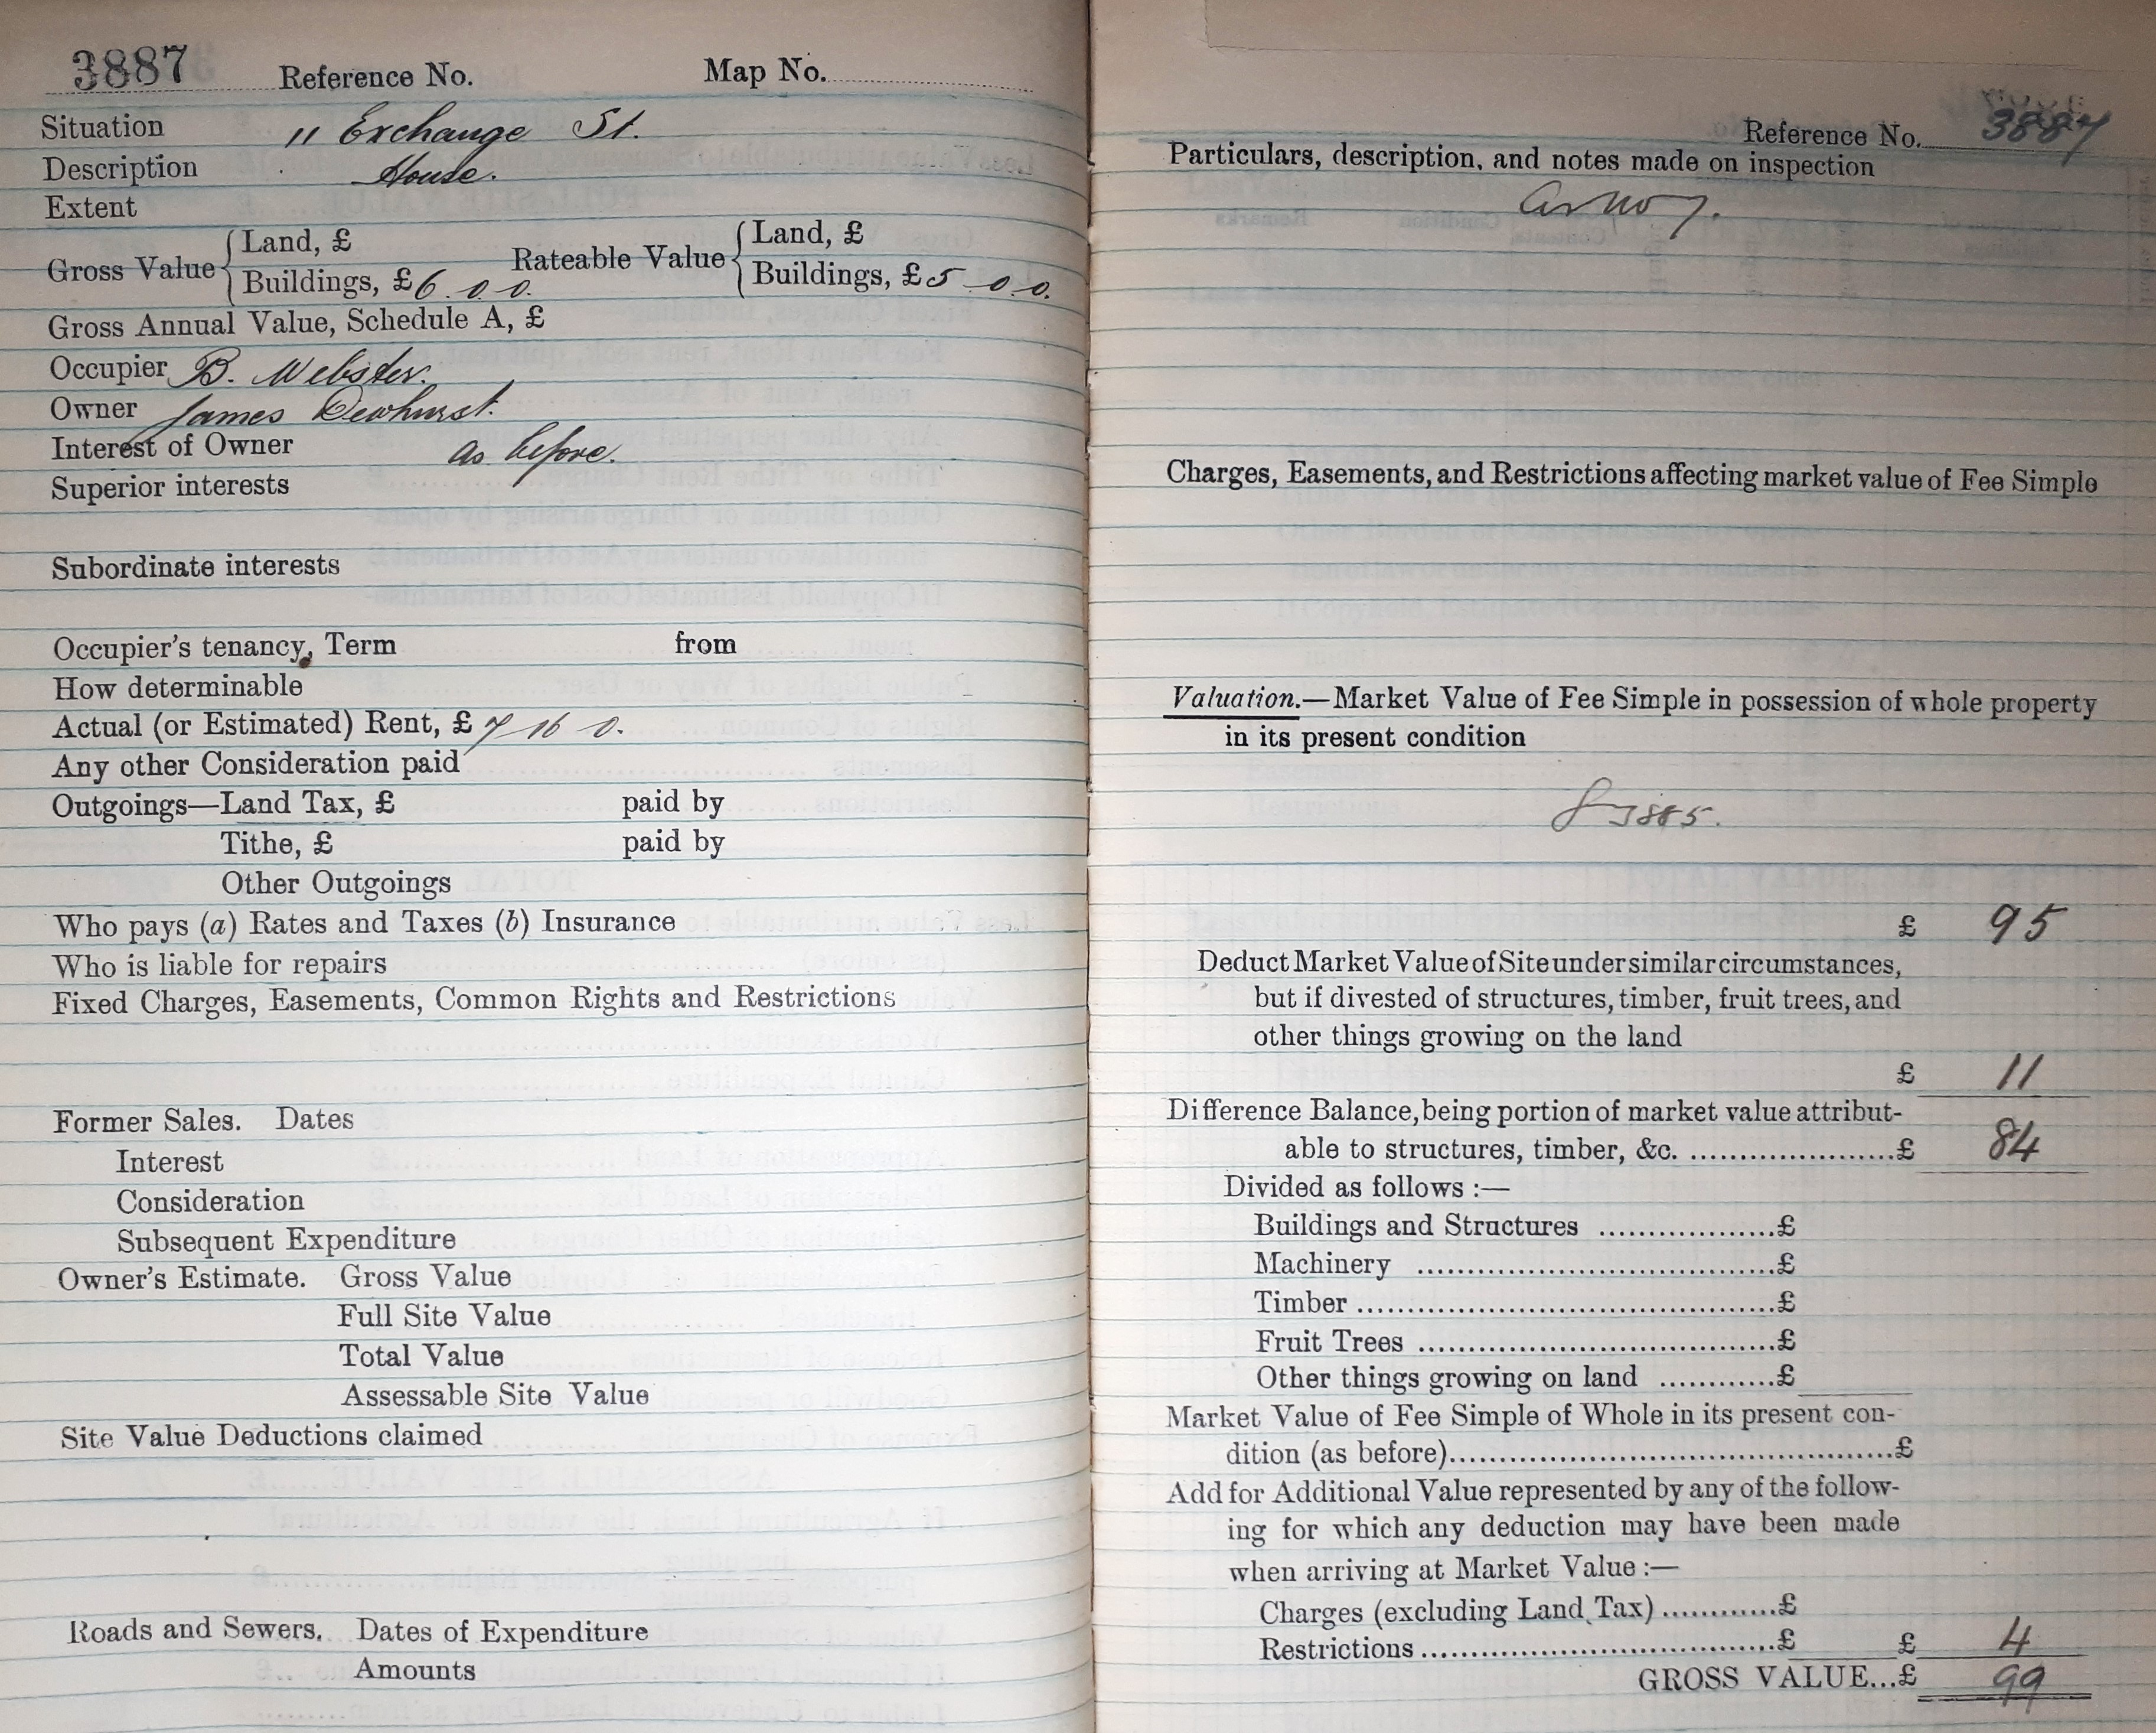 3887 Reference No. Map No.
Situation 11 Exchange St.
Description House.
Extent
Gross Value { Land, £ Rateable Value { Land, £
Buildings, £ 6. 0. 0. Buildings, £ 5 0. 0.
Gross Annual Value, Schedule A, £
Occupier B. Webster.
Owner James Dewhurst.
Interest of Owner as before.
Superior interests
Subordinate interests
Occupier's tenancy, Term from
How determinable
Actual (or Estimated) Rent, £ 7 16 0.
Any other Consideration paid
Outgoings—Land Tax, £ paid by
Tithe, £ paid by
Other Outgoings
Who pays (a) Rates and Taxes (b) Insurance
Who is liable for repairs
Fixed Charges, Easements, Common Rights and Restrictions
Former Sales. Dates
Interest
Consideration
Subsequent Expenditure
Owner's Estimate. Gross Value
Full Site Value
Total Value
Assessable Site Value
Site Value Deductions claimed
Roads and Sewers. Dates of Expenditure
Amounts
Reference No. 3887
Particulars, description, and notes made on inspection
as No 7.
Charges, Easements, and Restrictions affecting market value of Fee Simple
Valuation.—Market Value of Fee Simple in possession of whole property
in its present condition
£ 95
Deduct Market Value of Site under similar circumstances,
but if divested of structures, timber, fruit trees, and
other things growing on the land
£ 11
Difference Balance, being portion of market value attribut-
able to structures, timber, &c. ......................£ 84
Divided as follows :—
Buildings and Structures ..................£
Machinery ....................................£
Timber ..........................................£
Fruit Trees ....................................£
Other things growing on land ............£
Market Value of Fee Simple of Whole in its present con-
dition (as before)..............................................£
Add for Additional Value represented by any of the follow-
ing for which any deduction may have been made
when arriving at Market Value :—
Charges (excluding Land Tax) ............£
Restrictions ......................................£ £ 4
GROSS VALUE...£ 99